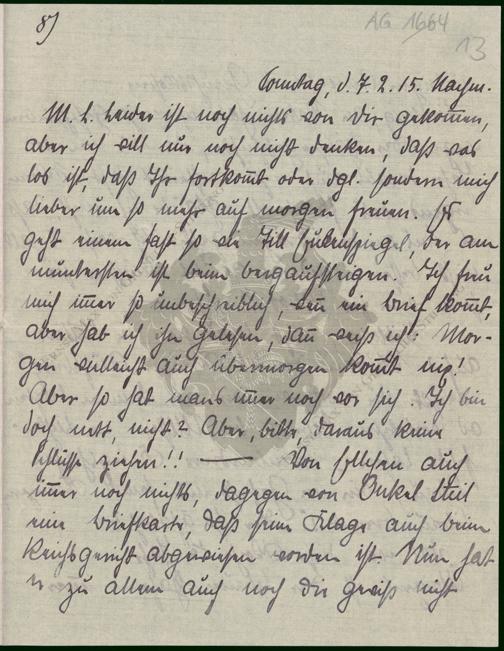 8)
AG 1664
13
Sonntag, d. 7. 2. 15. Nachm.
M. l. Leider ist noch nichts von dir gekom̅en,
aber ich will nur noch nicht denken, daß was
los ist, daß Ihr fortkom̅t oder dgl. sondern mich
lieber um so mehr auf morgen freuen. Es
geht einem fast so wie Till Eulenspiegel, der am
muntersten ist beim bergaufsteigen. Ich freu
mich im̅er so unbeschreiblich, wen̅ ein Brief kom̅t,
aber hab ich ihn gelesen, dan̅ weiß ich: Mor-
gen vielleicht auch übermorgen kom̅t nix!
Aber so hat mans im̅er noch vor sich. Ich bin
doch nett, nicht? Aber, bitte, daraus keine
Schlüsse ziehen!! — Von Ellchen auch
im̅er noch nichts, dagegen von Onkel Emil
eine Briefkarte, daß seine Klage auch beim
Reichsgericht abgewiesen worden ist. Nun hat
er zu allem auch noch die gewiß nicht